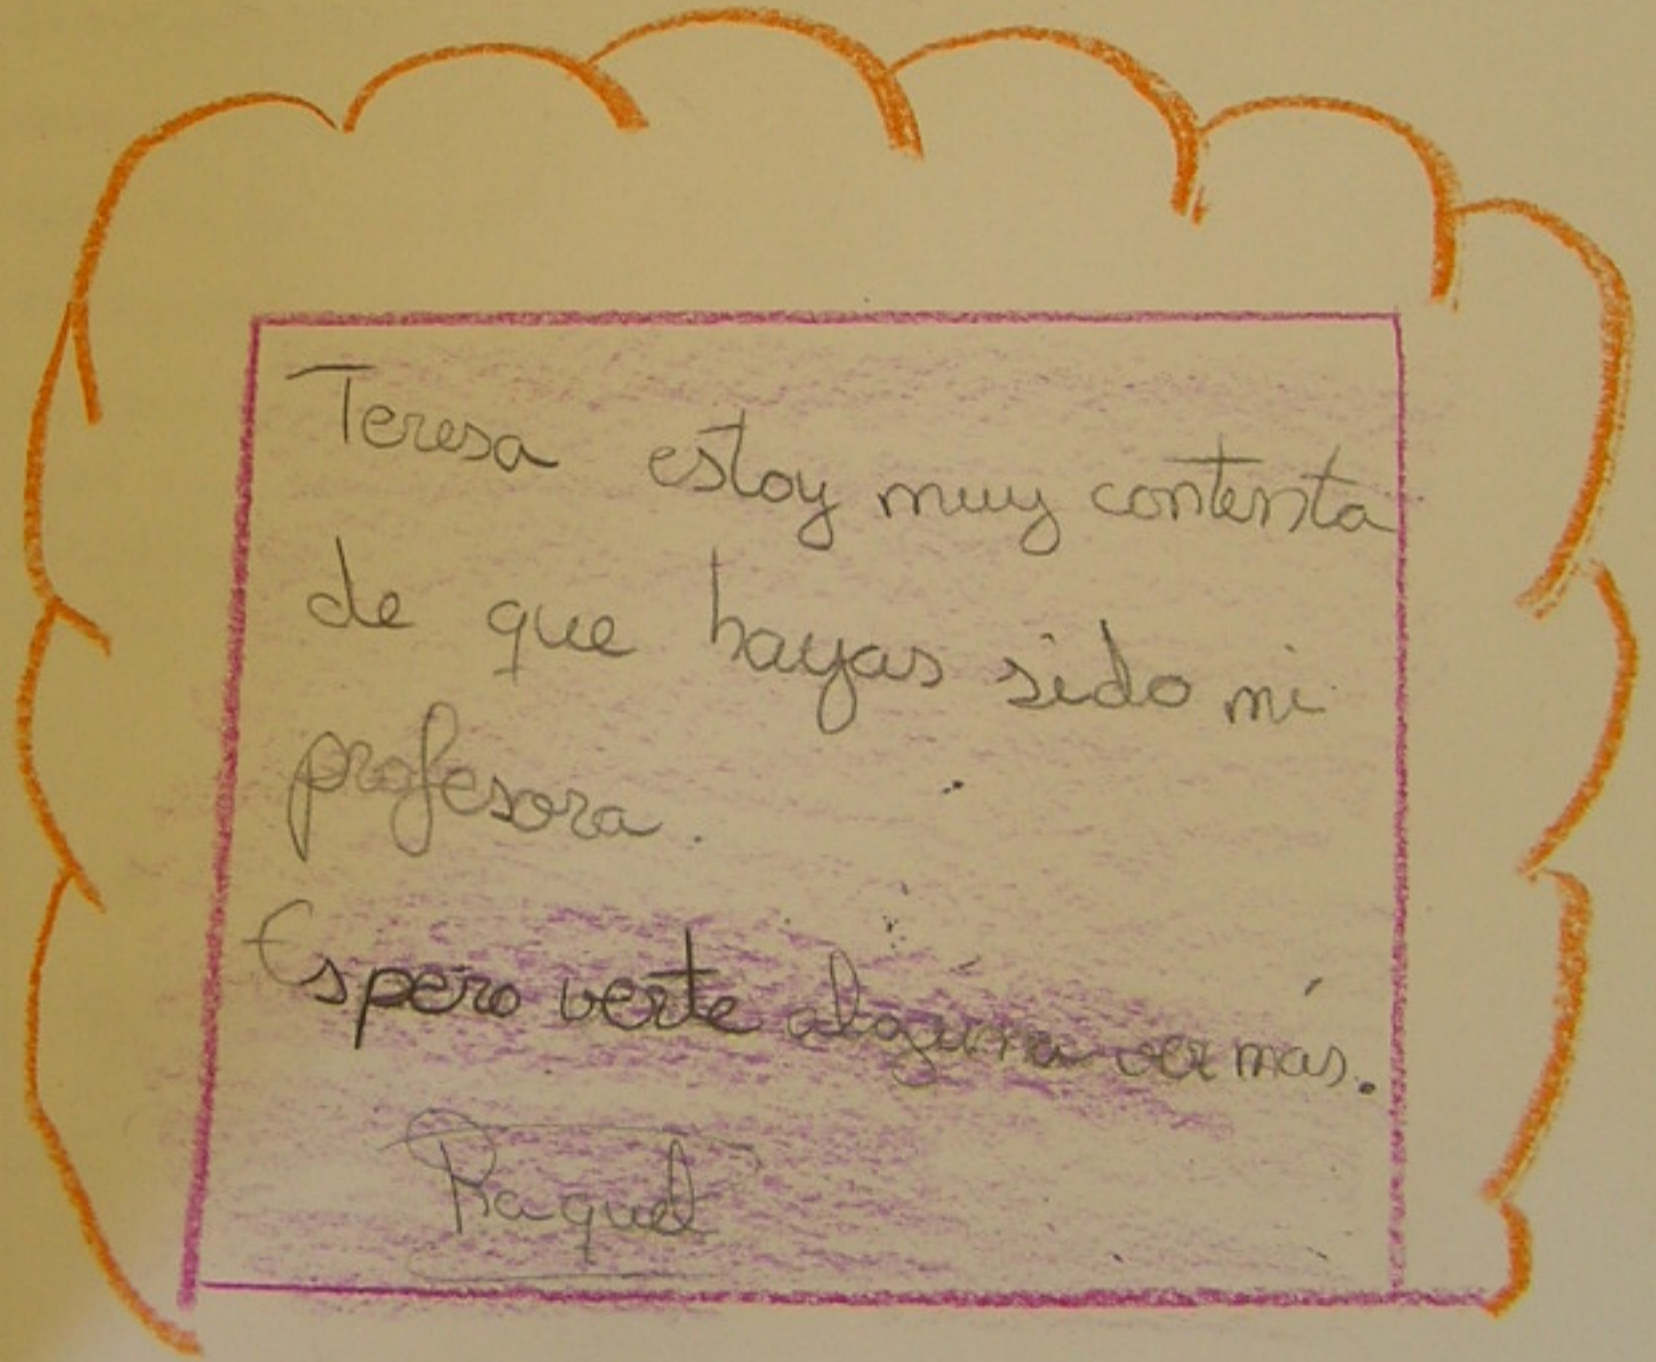 Teresa estoy muy contenta
de que hayas sido mi
profesora.
Espero verte alguna vez más.
Raquel